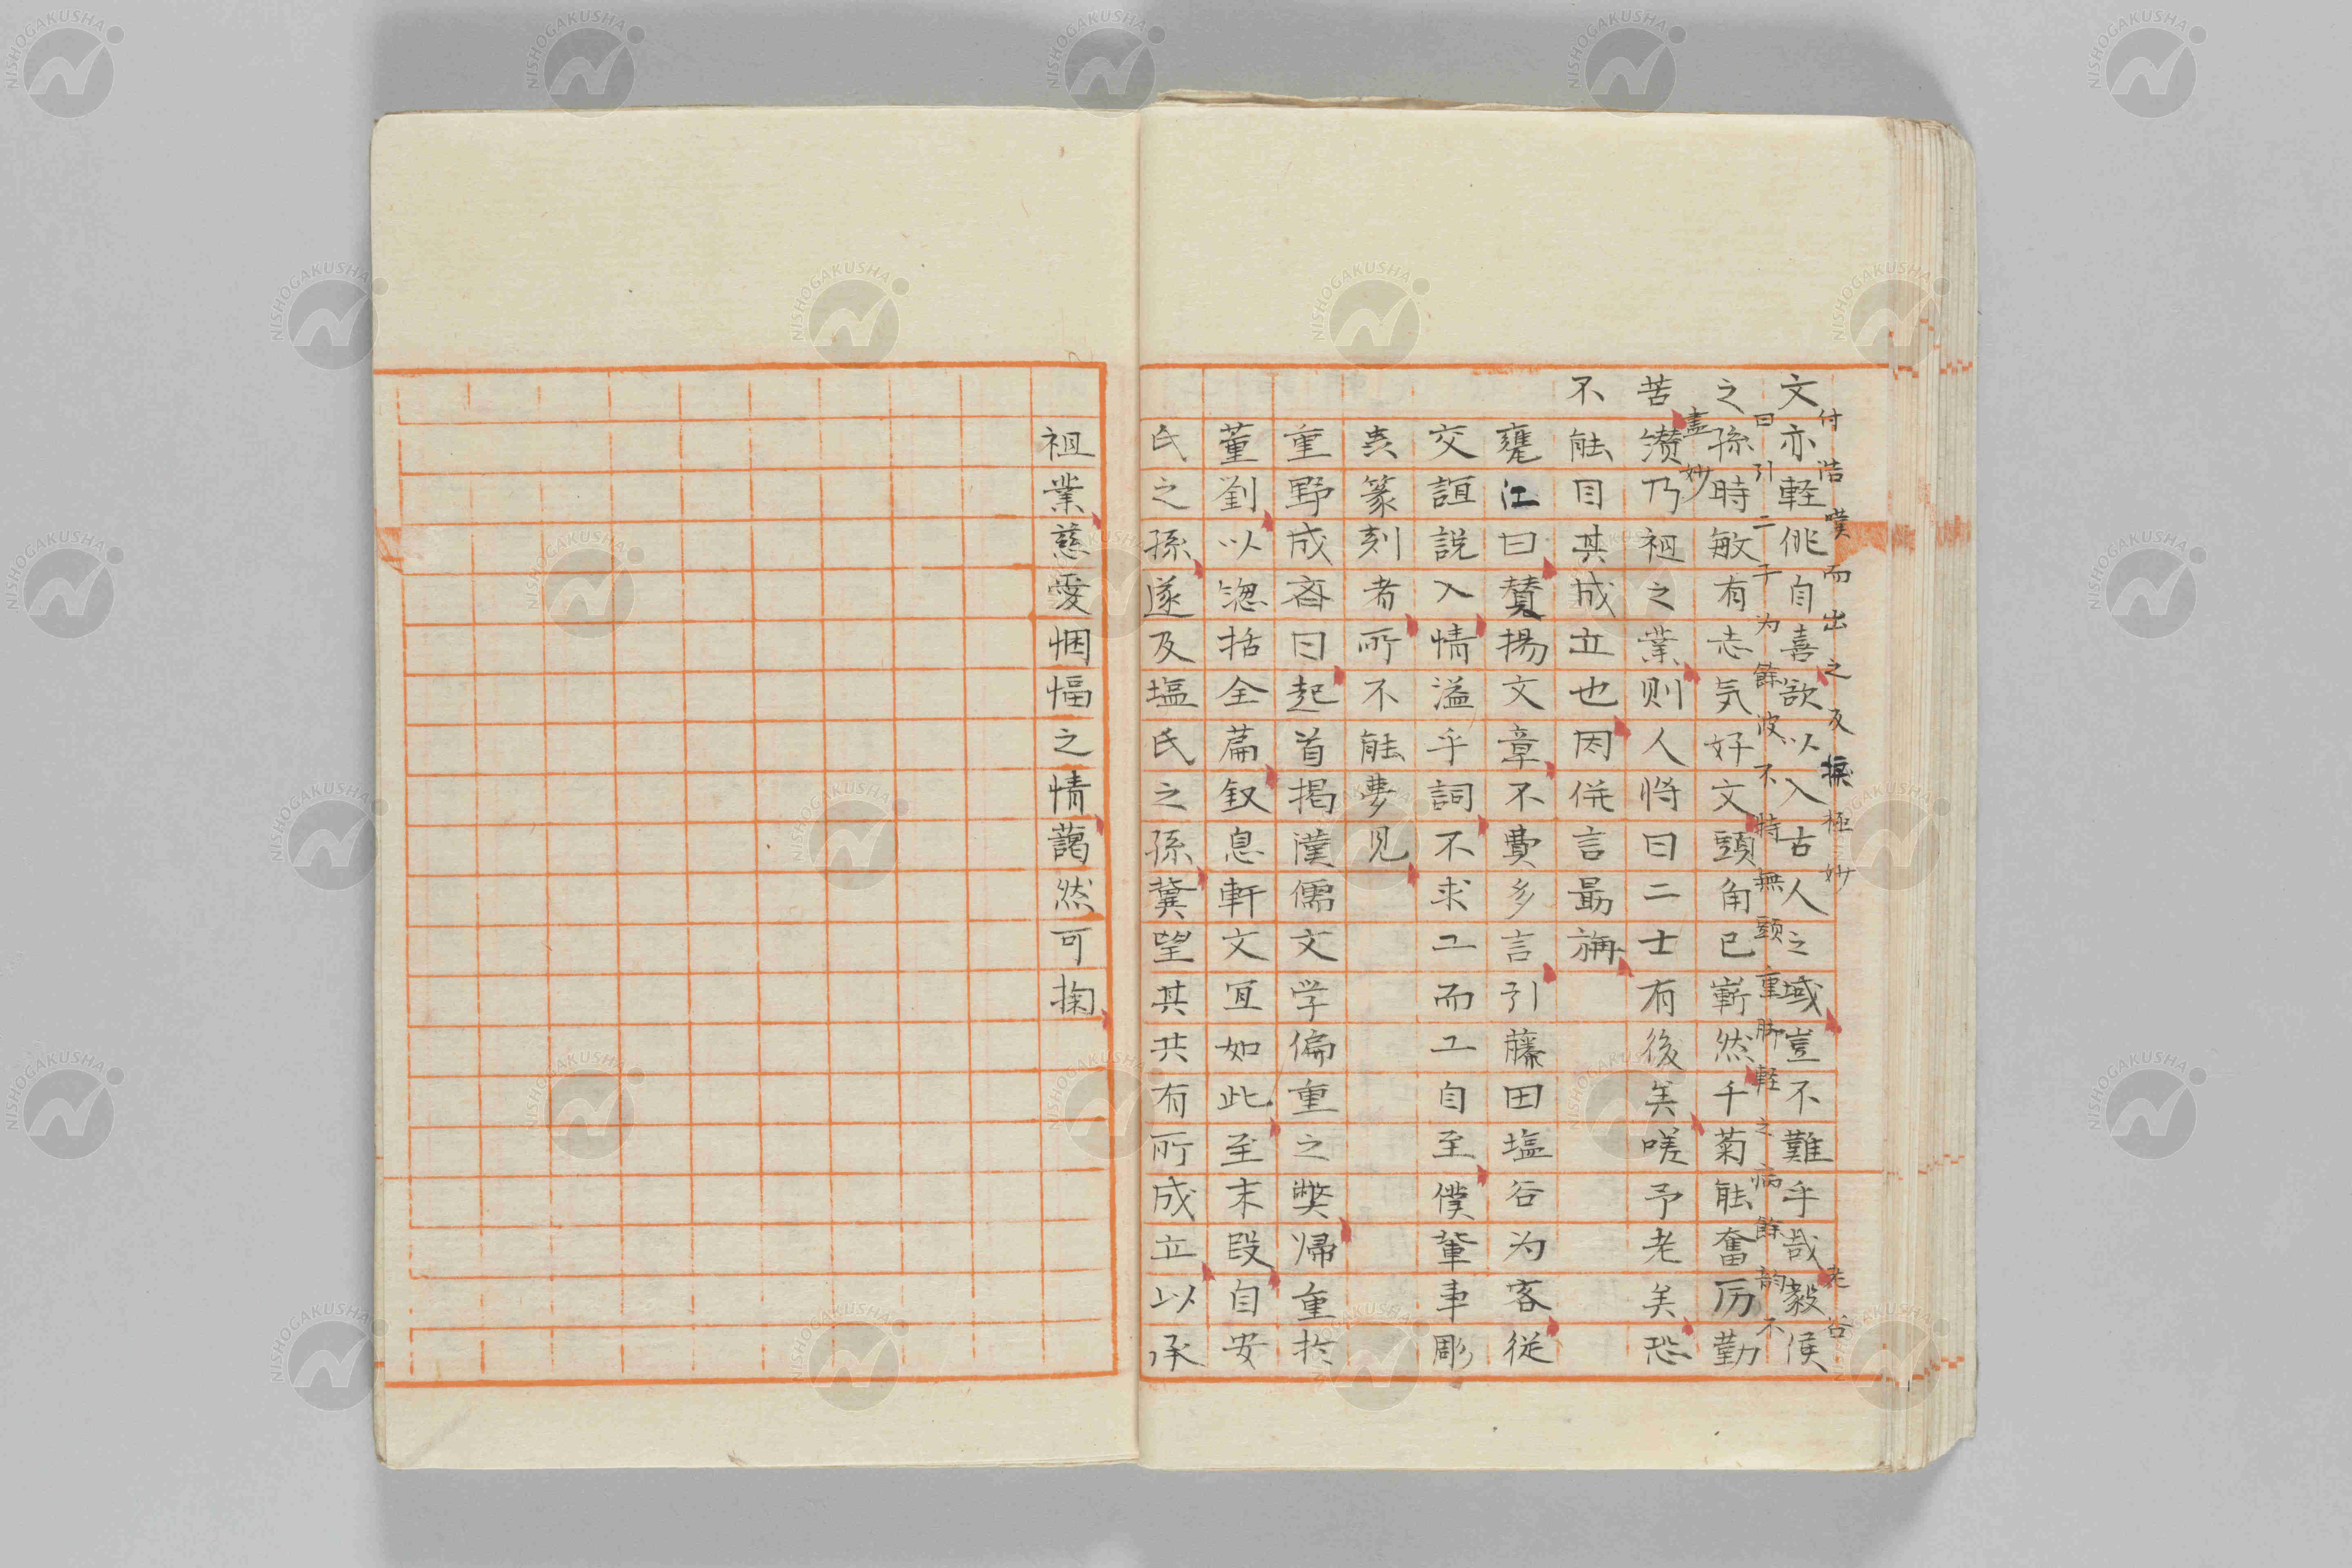 付浩嘆而出之反掖極妙 老谷
文亦軽佻自喜欲以入古人之域豈不難乎哉毅侯
曰引二子为餘波不特無頭重脚軽之病餘韵不
之孫時敏有志気好文頭角已嶄然千菊能奮厉勤
盡妙
苦纉乃祖之業則人将曰二士有後矣嗟予老矣恐
不能目其成立也因併言最旃
甕江曰賛揚文章不費多言引藤田塩谷为客従
交誼説入情溢乎詞不求工而工自至僕輩事彫
虫篆刻者所不能夢見
重野成斎曰起首掲漢儒文学偏重之弊帰重扵
董劉以惣括全篇叙息軒文冝如此至末段自安
氏之孫遂及塩氏之孫冀望其共有所成立以承
祖業慈愛悃愊之情藹然可掬
NISHOGAKUSHA